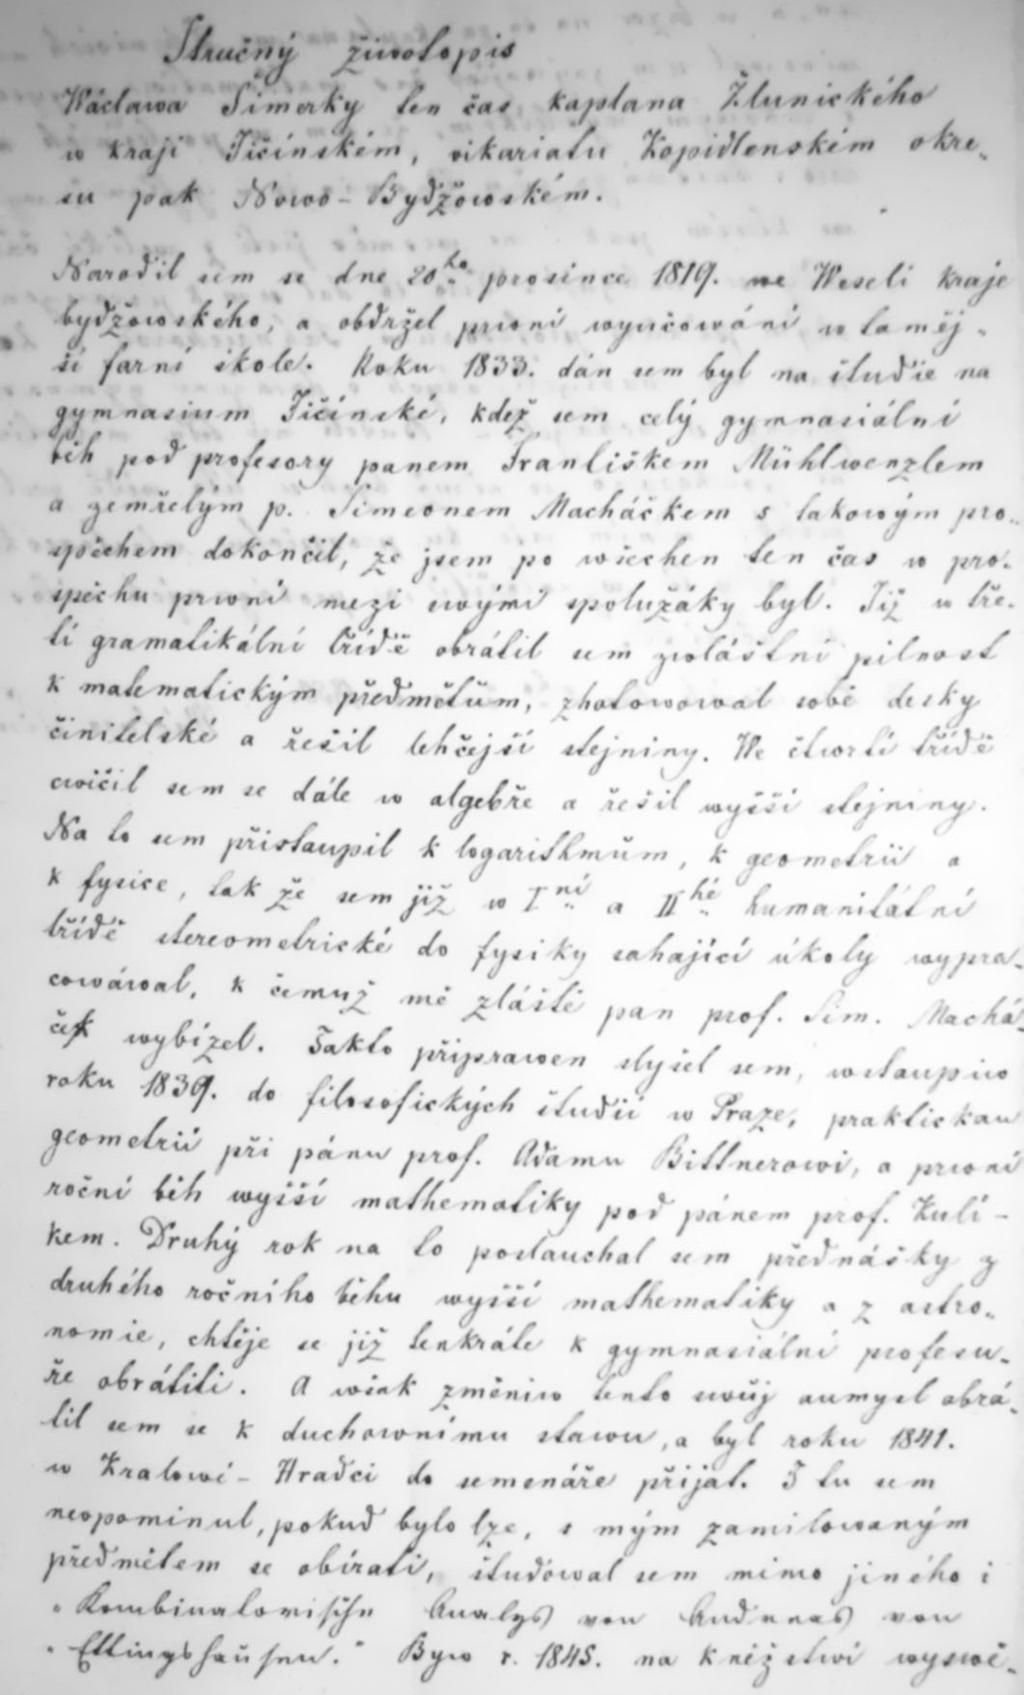 Stručný životopis
Wáclawa Šimerky ten čas kaplana Žlunického
w kraji Jičínském, vikariatu Kopidlenském okre„
su pak Nowo-Bydžowském.
Narodil sem se dne 20ho prosince 1819. we Weselí kraje
bydžowského, a obdržel prwní wyučowání w taměj„
ší farní škole. Roku 1833. dán sem byl na študie na
gymnasium Jičínské, kdež sem celý gymnasiální
běh pod profesory panem Františkem Mühlwenzlem
a zemřelým p. Simeonem Macháčkem s takowým pro„
spěchem dokončil, že jsem po wšechen ten čas w pro„
spěchu prwní mezi swými spolužáky byl. Již w tře„
tí gramatikální třídě obrátil sem zwláštní pilnost
k matematickým předmětům, zhotowowal sobě desky
činitelské a řešil lehčejší stejniny. We čtwrté třídě
cwičil sem se dále w algebře a řešil wyšší stejniny.
Na to sem přistaupil k logarithmům, k geometrii a
k fysice, tak že sem již w Iní a IIhé humanitátní
třídě stereometrické do fysiky sahající úkoly wypra„
cowáwal, k čemuž mě zláště pan prof. Sim. Machá„
ček wybízel. Takto připrawen slyšel sem, wstaupiw
roku 1839. do filosofických študií w Praze, praktickau
geometrii při pánu prof. Adamu Bittnerowi, a prwní
roční běh wyšší mathematiky pod pánem prof. Kuli-
kem. Druhý rok na to poslauchal sem přednášky z
druhého ročního běhu wyšší mathematiky a z astro„
nomie, chtěje se již tenkráte k gymnasiální profesu„
ře obrátiti. A wšak změniw tento swůj aumysl obrá„
til sem se k duchownímu stawu, a byl roku 1841.
w Kralowé-Hradci do semenáře přijat. I tu sem
neopominul, pokud bylo lze, s mým zamilowaným
předmětem se obírati, študowal sem mimo jiného i
„Kombinatorische Analys von Andreas von
„Ettingshausen.“ Byw r. 1845. na kněžstwí wyswě„